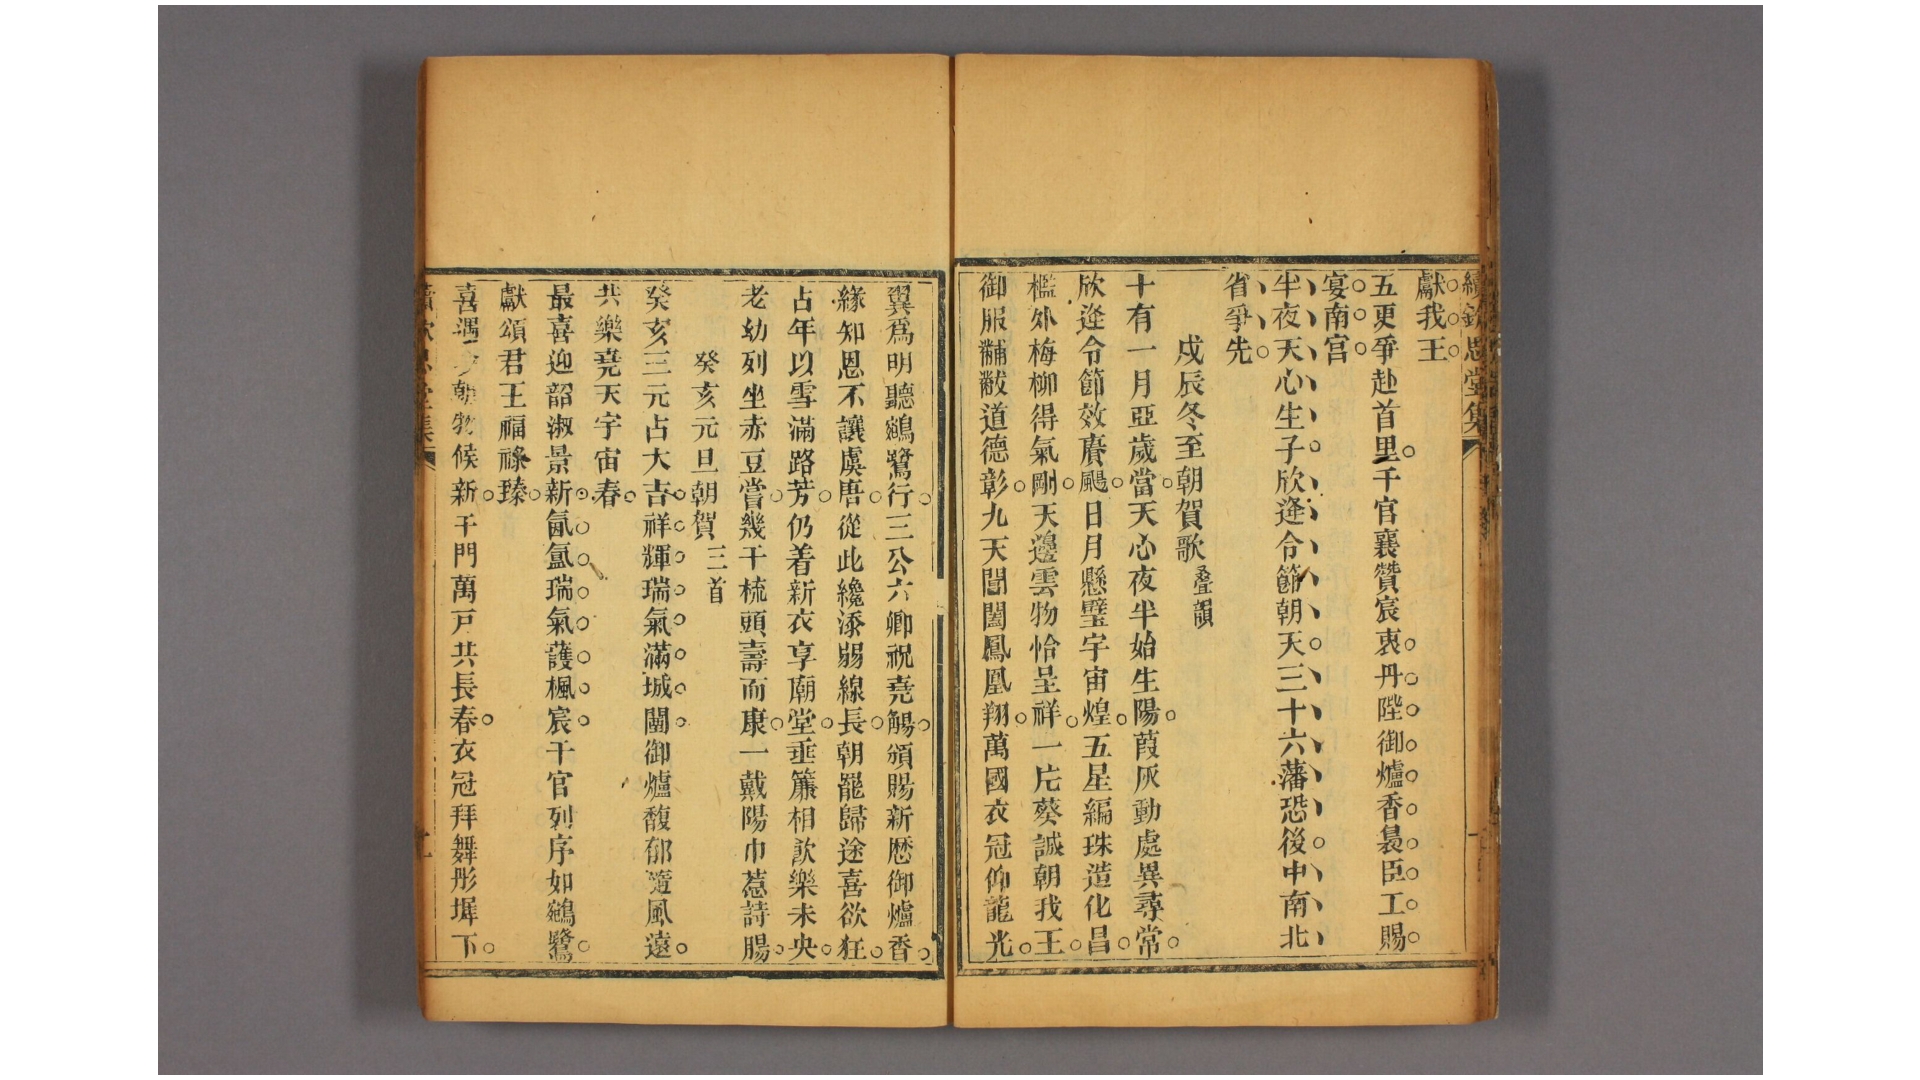 續欽思堂集
獻我王
五更爭赴首里千官襄贊宸衷丹陛御爐香裊臣工賜
宴南宮
半夜天心生子欣逢令節朝天三十六藩恐後中南北
省爭先
戊辰冬至朝賀歌 叠韻
十有一月亞歲當天心夜半始生陽葭灰動處異尋常
欣逢令節效賡颺日月懸璧宇宙煌五星編珠造化昌
檻外梅柳得氣剛天邊雲物恰呈祥一片葵誠朝我王
御服黼黻道德彰九天閶闔鳳凰翔萬國衣冠仰龍光
翼爲明聽鵷鷺行三公六卿祝堯觴頒賜新曆御爐香
緣知恩不讓虞唐從此纔添弱線長朝罷歸途喜欲狂
占年以雪滿路芳仍着新衣享廟堂垂簾相歡樂未央
老幼列坐赤豆嘗幾干梳頭壽而康一戴陽巾惹詩腸
癸亥元旦朝賀 三首
癸亥三元占大吉祥輝瑞氣滿城闉御爐馥郁隨風遠
共樂堯天宇宙春
最喜迎韶淑景新氤氳瑞氣護楓宸千官列序如鵷鷺
獻頌君王福祿臻
喜遇 朝物候新千門萬戸共長春衣冠拜舞彤墀下